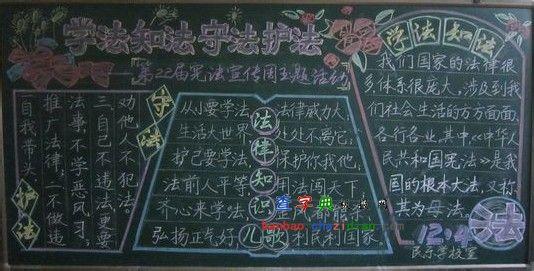 学法知法守法护法
第22届宪法宣传周主题活动
学法知法
我们国家的法律很
多,体系很庞大,涉及到我
们社会生活的方方面面,
各行各业,其中,《中华人
民共和国宪法》是我
国的根本大法,又称
其为母法。
12.4
法
守法
护法
劝他人不犯法。
三自己不违法更要
法事,不学恶风习。
推广法律,二不做违
自我带头
法律知识儿歌
从小要学法,法律威力大,
生活大世界,处处不离它,
护己要学法,保护你我他,
法前人平等,用法闯天下,
齐心来学法,
都能亲。
弘扬正气好,利民利国家
查字典